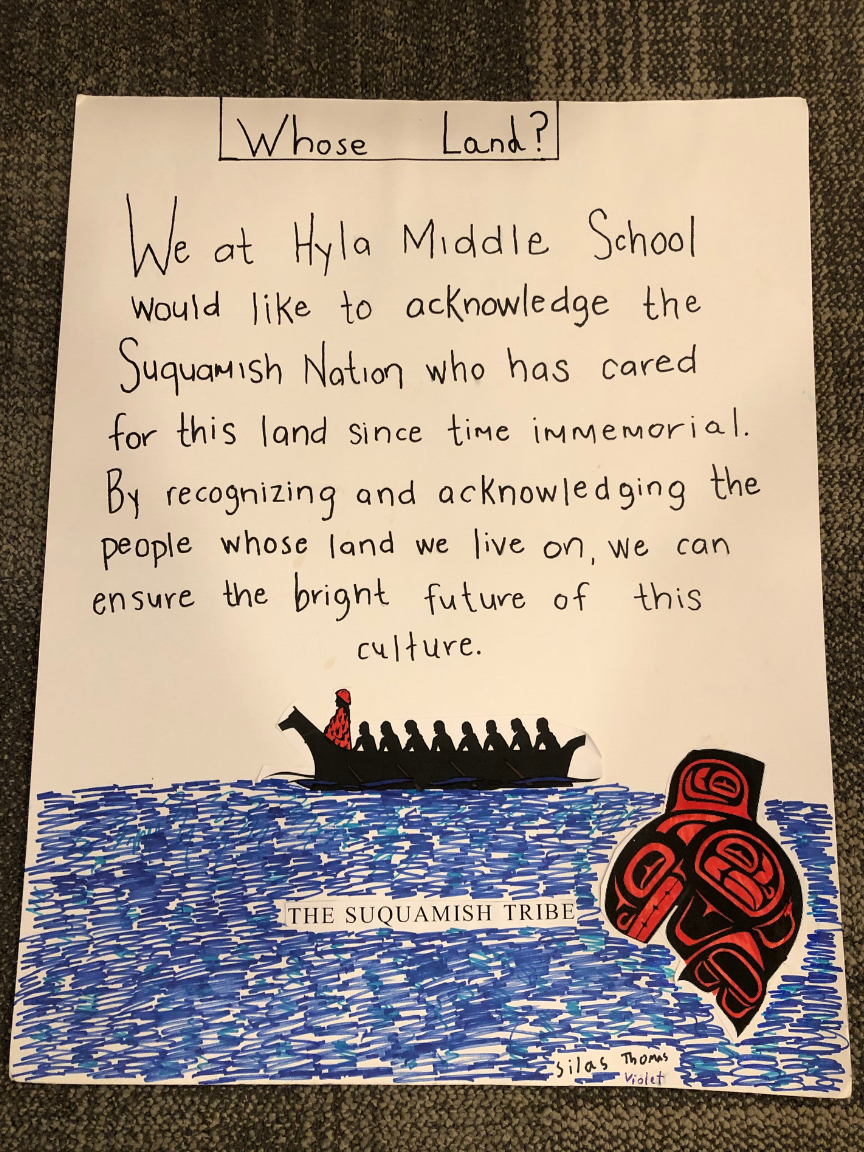 Whose Land?
We at Hyla Middle School
would like to acknowledge the
Suquamish Nation who has cared
for this land since time immemorial.
By recognizing and acknowledging the
people whose land we live on, we can
ensure the bright future of this
culture.
THE SUQUAMISH TRIBE
Silas Thomas
Violet